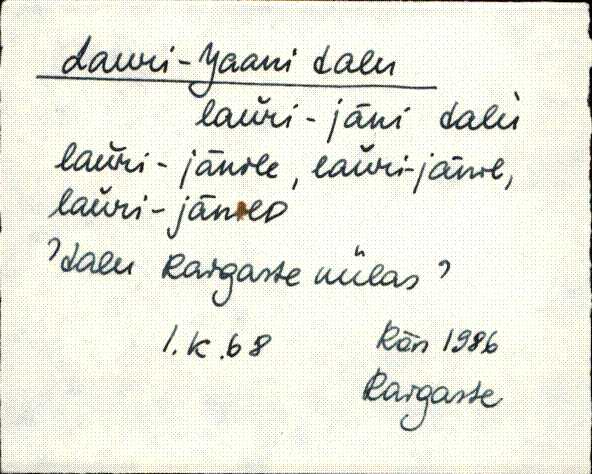 Lauri-Jaani talu
laŭri-jāni talu
laŭri-jānile, laŭri-jānil,
laŭri-jānilD
'talu Kargaste külas'
1.k.68 Rän 1986
Kargaste